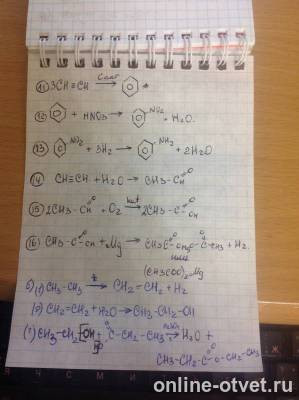 11) 3CH≡CH → Cакт
12) + HNO3 → NO2 + H2O
13) NO2 + 3H2 → NH2 + 2H2O
14) CH≡CH + H2O → CH3-C O H
15) 2CH3-C O H + O2 kat → 2CH3-C O OH
16) CH3-C O OH + Mg → CH3 C O O + H2
или
(CH3COO)2Mg
CH3-CH3 t → CH2=CH2 + H2
CH2=CH2 + H2O → CH3-CH2-OH
CH3-CH2 OH + C-CH2-CH3 → H2O +
CH3-CH2-C O O-CH2-CH3
online-otvet.ru